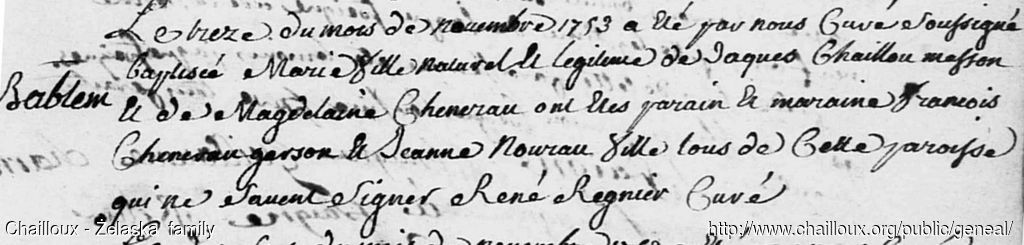 Le treze du mois de novembre 1753 a eté par nous Curé soussigné
Baptem
baptiseé Marie fille naturel et legitime de Jaques Chaillou masson
et de Magdelaine Chenerau ont etes parain et maraine francois
Chenerau garson et Jeanne Nourau fille tous de Cette paroisse
qui ne savent signer René Regnier Curé
Chailloux - Żelaska family
http://www.chailloux.org/public/geneal/